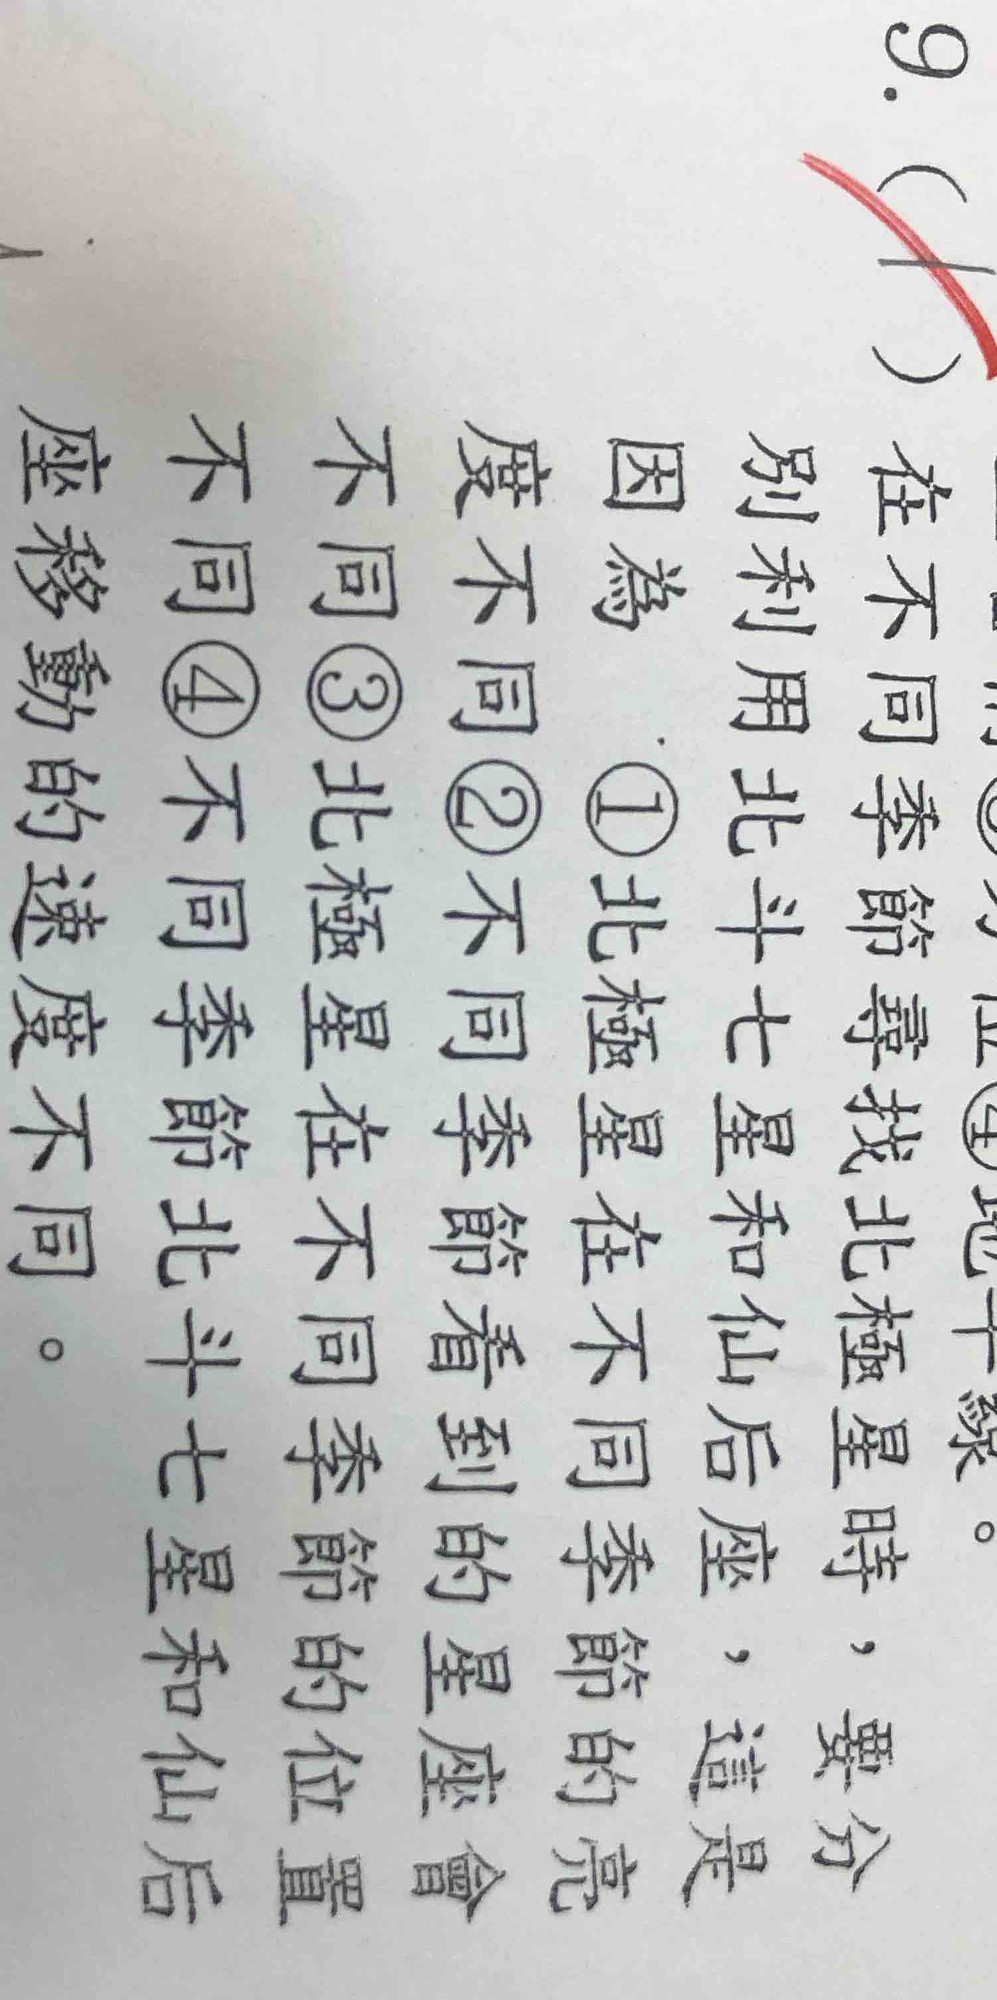 9.( )
④地平線。
在不同季節尋找北極星時，要分
別利用北斗七星和仙后座，這是
因為 ①北極星在不同季節的亮
度不同②不同季節看到的星座會
不同③北極星在不同季節的位置
不同④不同季節北斗七星和仙后
座移動的速度不同。